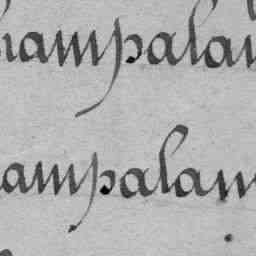 hampalan
ampalam